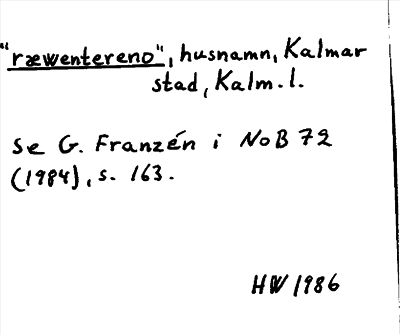 "ræwentereno", husnamn, Kalmar
stad, Kalm. l.
Se G. Franzén i NoB 72
(1984), s. 163.
HW 1986